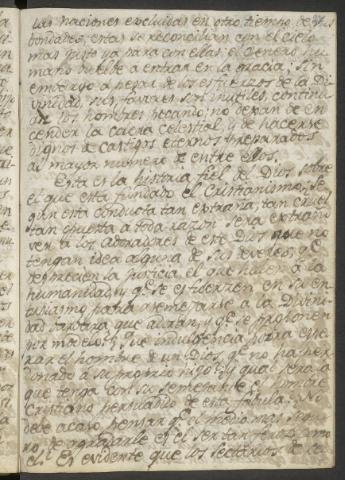 las naciones excluidas en otro tiempo de sus
bondades, estas se reconcilian con el cielo
mas justo ya para con ellas: el Genero hu-
mano vuelve a entrar en la gracia; Sin
embargo a pesar de los esfuerzos de la Di-
vinidad, sus favores son inutiles, continu-
an los hombres pecando; no dexan de en-
cender la cólera celestial, y de hacerse
dignos de castigos eternos preparados
al mayor numero de entre ellos.
Esta es la historia fiel de Dios sobre
el que está fundado el Cristianismo. Se-
gun esta conducta tan extraña, tan cruel
tan opuesta a toda razon será extraño
ver a los adoradores de este Dios que no
tengan idea alguna de sus deveres, qe
desprecien la justicia, el que huellen a la
humanidad, y qe se esfuerzen en su en-
tusiasmo para asemejarse a la Divini-
dad barbara que adoran, y qe se proponen
por modelo? Que indulgencia podra espe-
rar el hombre de un Dios qe no ha per-
donado a su proprio hijo? Y qual será la
que tenga con su semejante el hombre
Cristiano persuadido de esta fabula? No
debe acaso pensar qe el medio mas segu-
ro de agradarle es el ser tan feroz como
el? Es evidente que los sectarios de